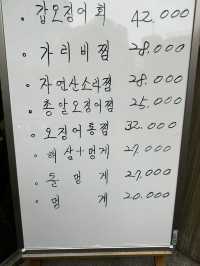 . 갑오징어 회 42.000
. 가리비찜 28.000
. 자연산소라찜 28.000
. 총알오징어찜 25.000
. 오징어통찜 32.000
. 해삼+멍게 27.000
. 돌 멍게 27.000
. 멍 게 20.000